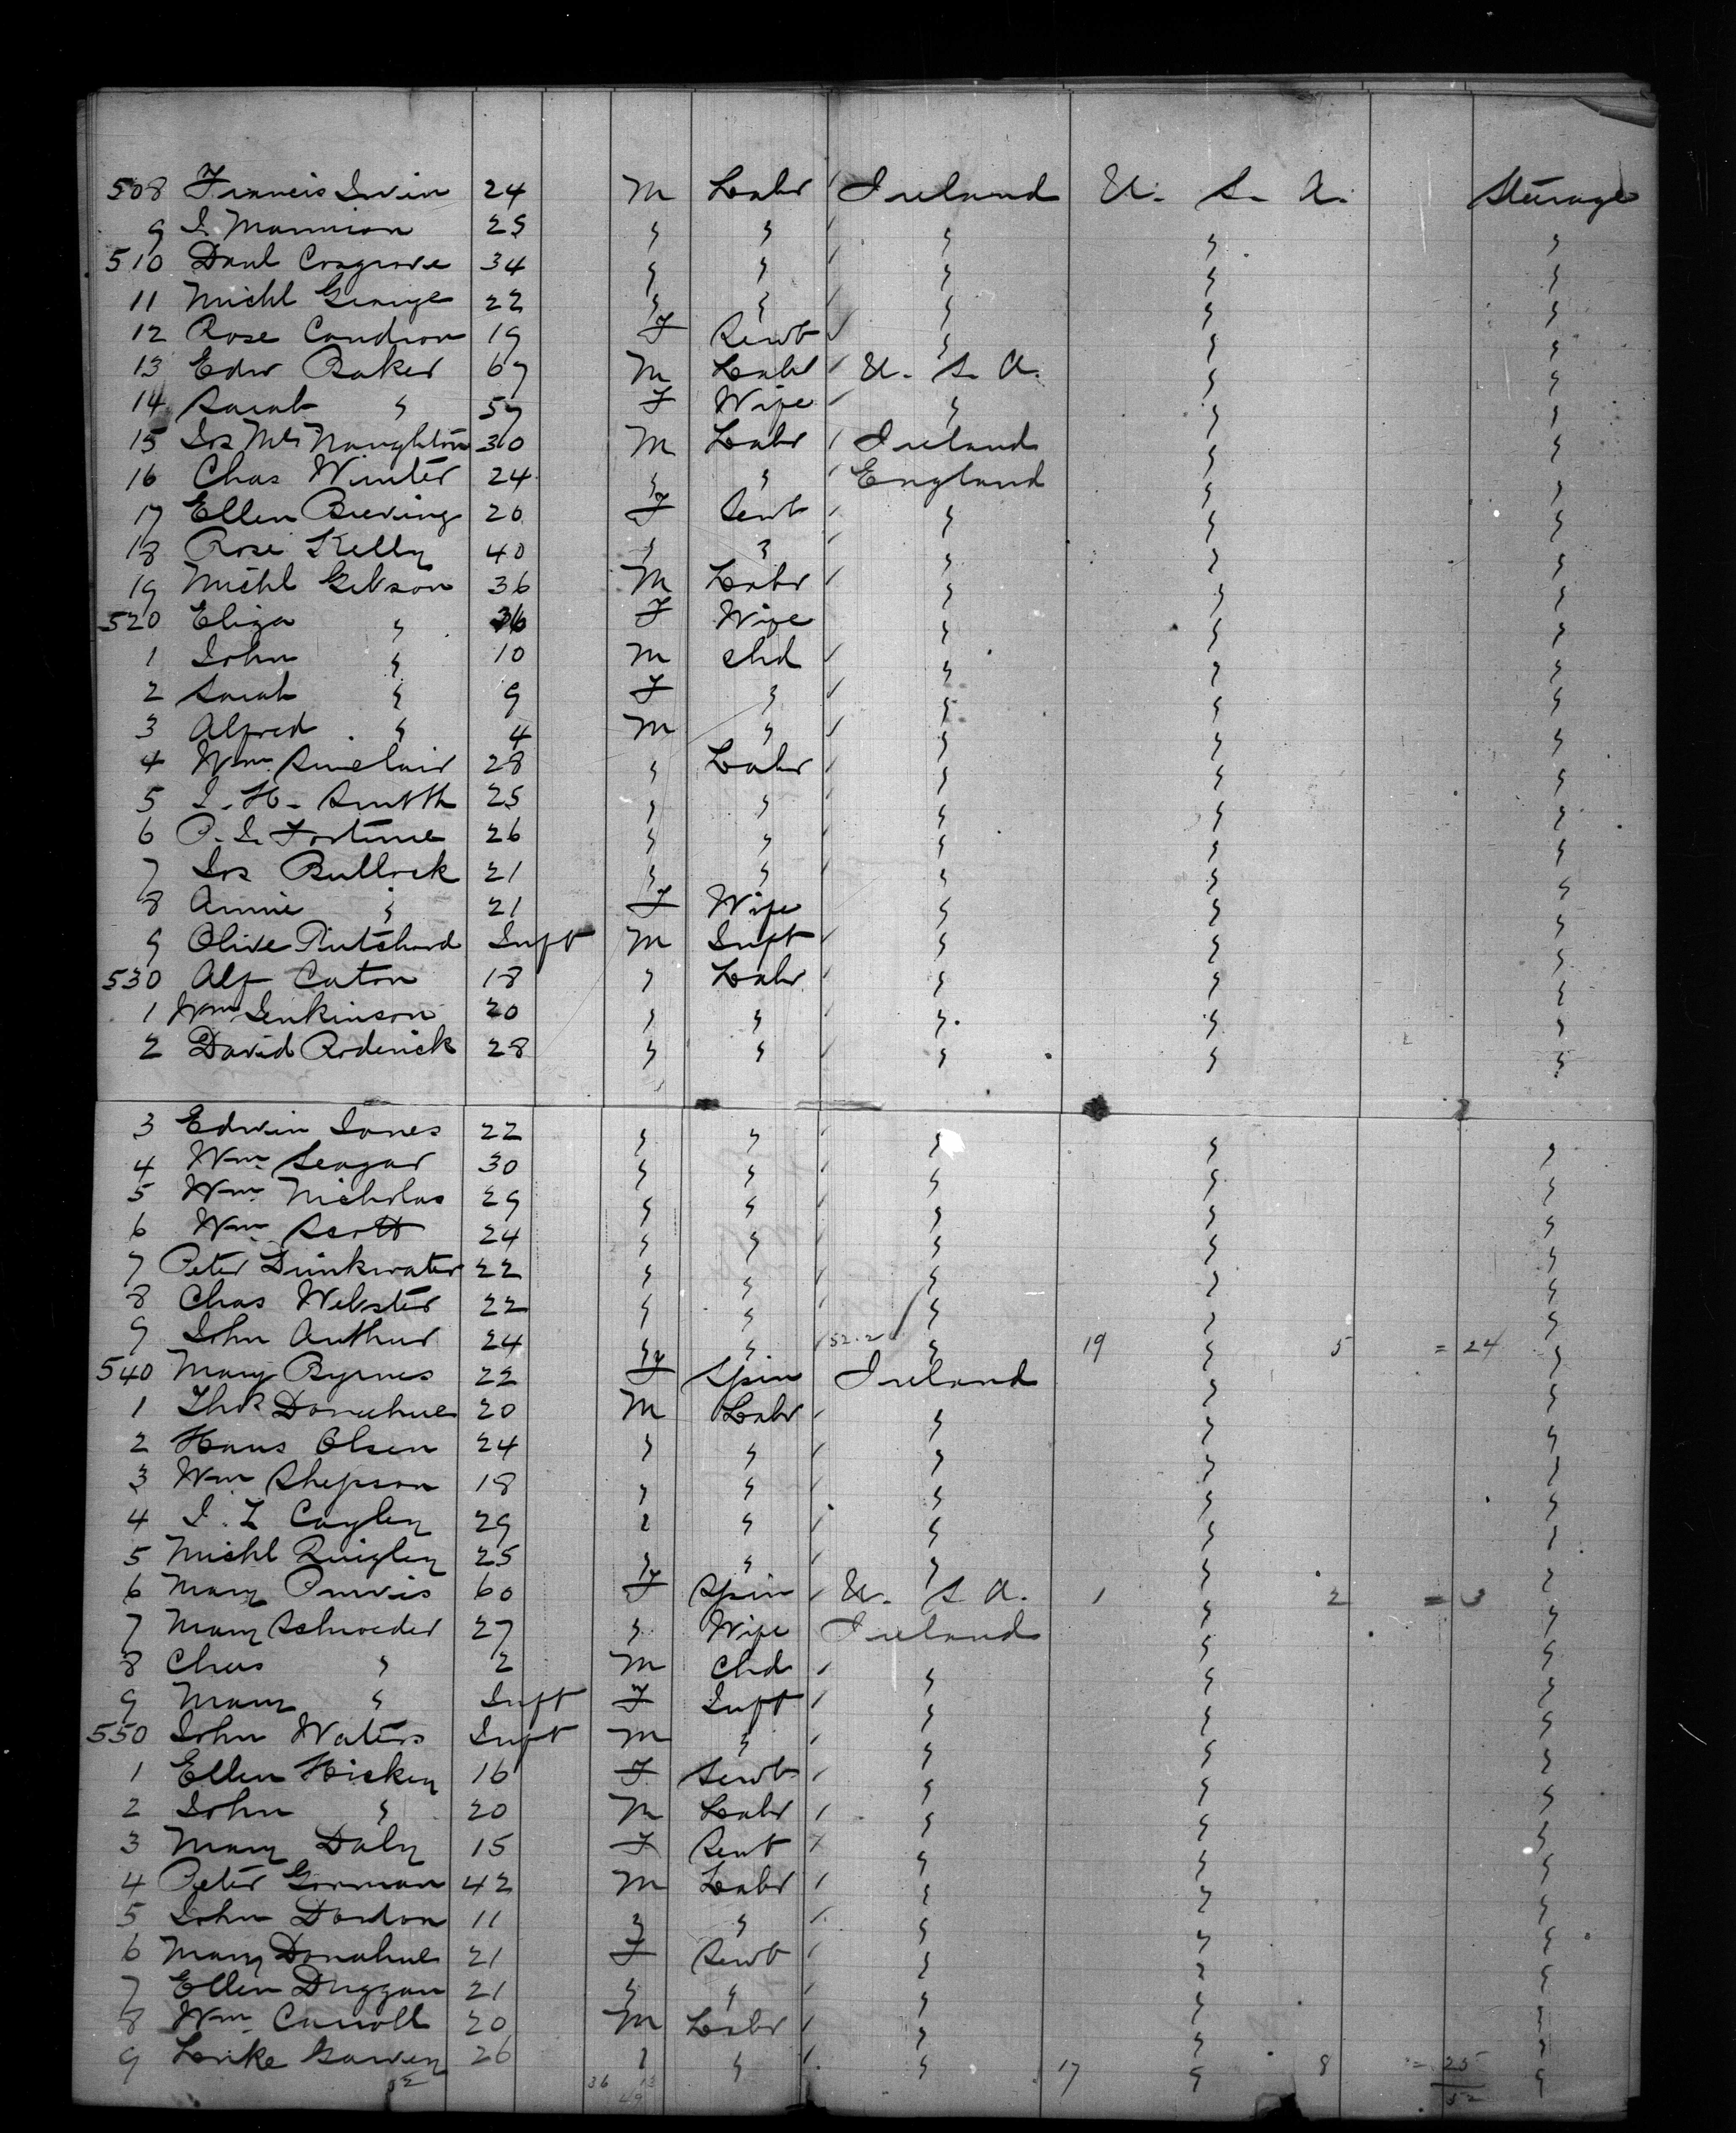 508 Francis Irvin 24 M Labr Ireland U. S. A. Steerage
9 J. Mannion 25 " " " " "
510 Danl Cosgrove 34 " " " " "
11 Michl George 22 " " " " "
12 Rose Condron 19 F Servt " " "
13 Edw Baker 67 M Labr U. S. A. " "
14 Sarah " 57 F Wife " " "
15 Jos McNaughton 30 M Labr Ireland " "
16 Chas Winter 24 " " England " "
17 Ellen 20 F Servt " " "
18 Rose Kelly 40 " " " " "
19 Michl Gibson 36 M Labr " " "
520 Eliza " 36 F Wife " " "
1 John " 10 M Chd " " "
2 Sarah " 9 F " " " "
3 Alfred " 4 M " " " "
4 Wm Sinclair 28 " Labr " " "
5 J. H. Smith 25 " " " " "
6 P. J. Fortune 26 " " " " "
7 Jos Bullock 21 " " " " "
8 Annie " 21 F Wife " " "
9 Olive Pritchard Inft M Inft " " "
530 Alf Caton 18 " Labr " " "
1 Wm Jenkinson 20 " " " " "
2 David Roderick 28 " " " " "
3 Edwin Jones 22 " " " " "
4 Wm Seagar 30 " " " " "
5 Wm Nicholas 29 " " " " "
6 Wm Scott 24 " " " " "
7 Peter Drinkwater 22 " " " " "
8 Chas Webster 22 " " " " "
9 John Arthur 24 " " 52.2 " 19 " 5 = 24 "
540 Mary Byrnes 22 F Spin Ireland " "
1 Thos Donahue 20 M Labr " " "
2 Hans Olsen 24 " " " " "
3 Wm Shepson 18 " " " " "
4 J. L Cayley 29 " " " " "
5 Michl Quigley 25 " " " " "
6 Mary Purvis 60 F Spin U. S A. 1 " 2 = 3 "
7 Mary Schroeder 27 " Wife Ireland " "
8 Chas " 2 M Chd " " "
9 Mary " Inft F Inft " " "
550 John Waters Inft M " " " "
1 Ellen Hickey 16 F Servt " " "
2 John " 20 M Labr " " "
3 Mary Daly 15 F Servt " " "
4 Peter Gorman 42 M Labr " " "
5 John Dordon 11 " " " " "
6 Mary Donahue 21 F Servt " " "
7 Ellen Duggan 21 " " " " "
8 Wm Carroll 20 M Labr " " "
9 Luke 26 " " " 17 " 8 = 25 "
52 36 13 52
49